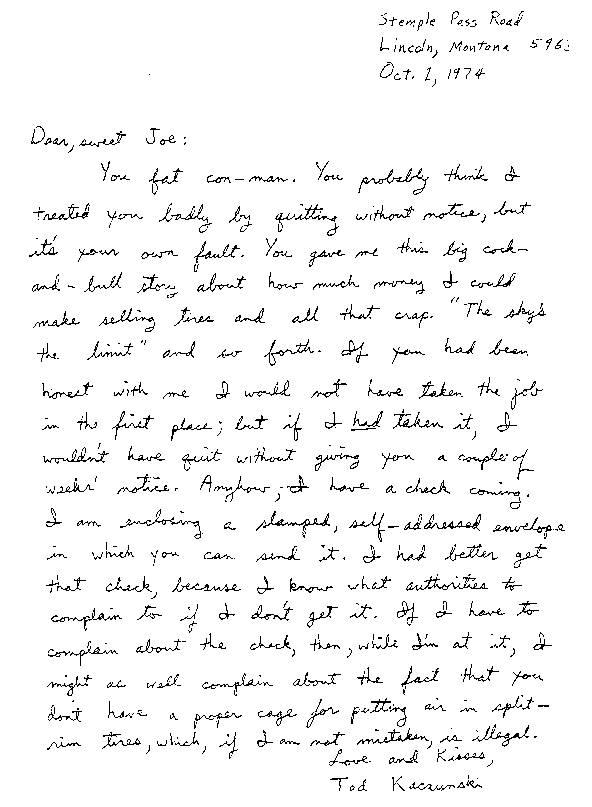 Stemple Pass Road
Lincoln, Montana 596
Oct. 1, 1974
Dear, sweet Joe:
You fat con-man. You probably think I
treated you badly by quitting without notice, but
it's your own fault. You gave me this big cock-
and-bull story about how much money I could
make selling tires and all that crap. "The sky's
the limit" and so forth. If you had been
honest with me I would not have taken the job
in the first place; but if I had taken it, I
wouldn't have quit without giving you a couple of
weeks' notice. Anyhow, I have a check coming.
I am enclosing a stamped, self-addressed envelope
in which you can send it. I had better get
that check, because I know what authorities to
complain to if I don't get it. If I have to
complain about the check, then, while I'm at it, I
might as well complain about the fact that you
don't have a proper cage for putting air in split-
rim tires, which, if I am not mistaken, is illegal.
Love and Kisses,
Ted Kaczynski